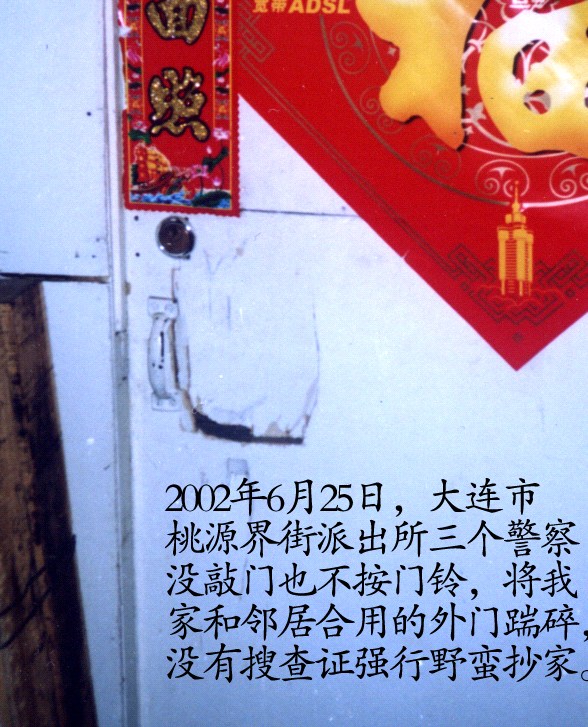 宽带ADSL
福
面
照
2002年6月25日，大连市
桃源界街派出所三个警察
没敲门也不按门铃，将我
家和邻居合用的外门踹碎，
没有搜查证强行野蛮抄家。